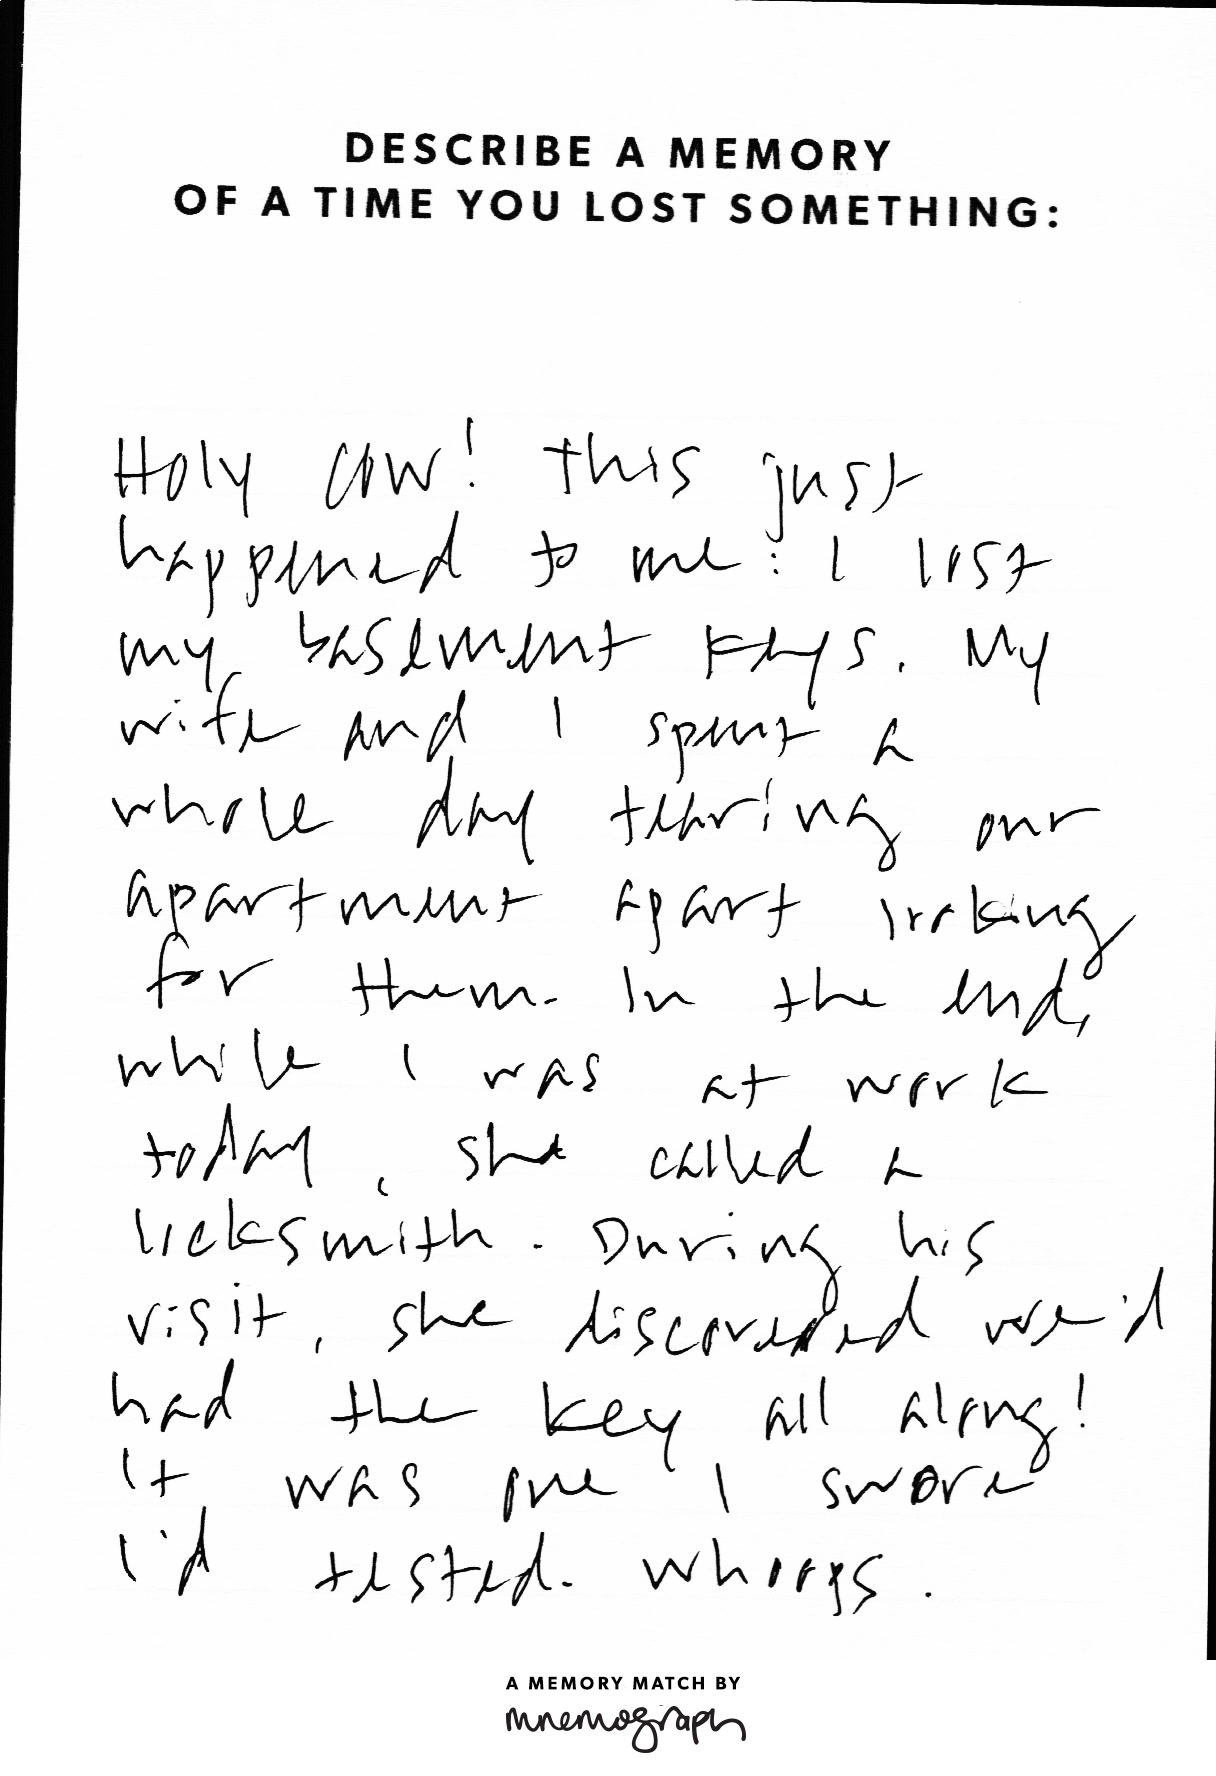 DESCRIBE A MEMORY
OF A TIME YOU LOST SOMETHING:
Holy cow! This just
happened to me: I lost
my basement keys. My
wife and I spent a
whole day tearing our
apartment apart looking
for them. In the end,
while I was at work
today, she called a
locksmith. During his
visit, she discovered we'd
had the key all along!
It was one I swore
I'd tested. Whoops.
A MEMORY MATCH BY
mnemograph